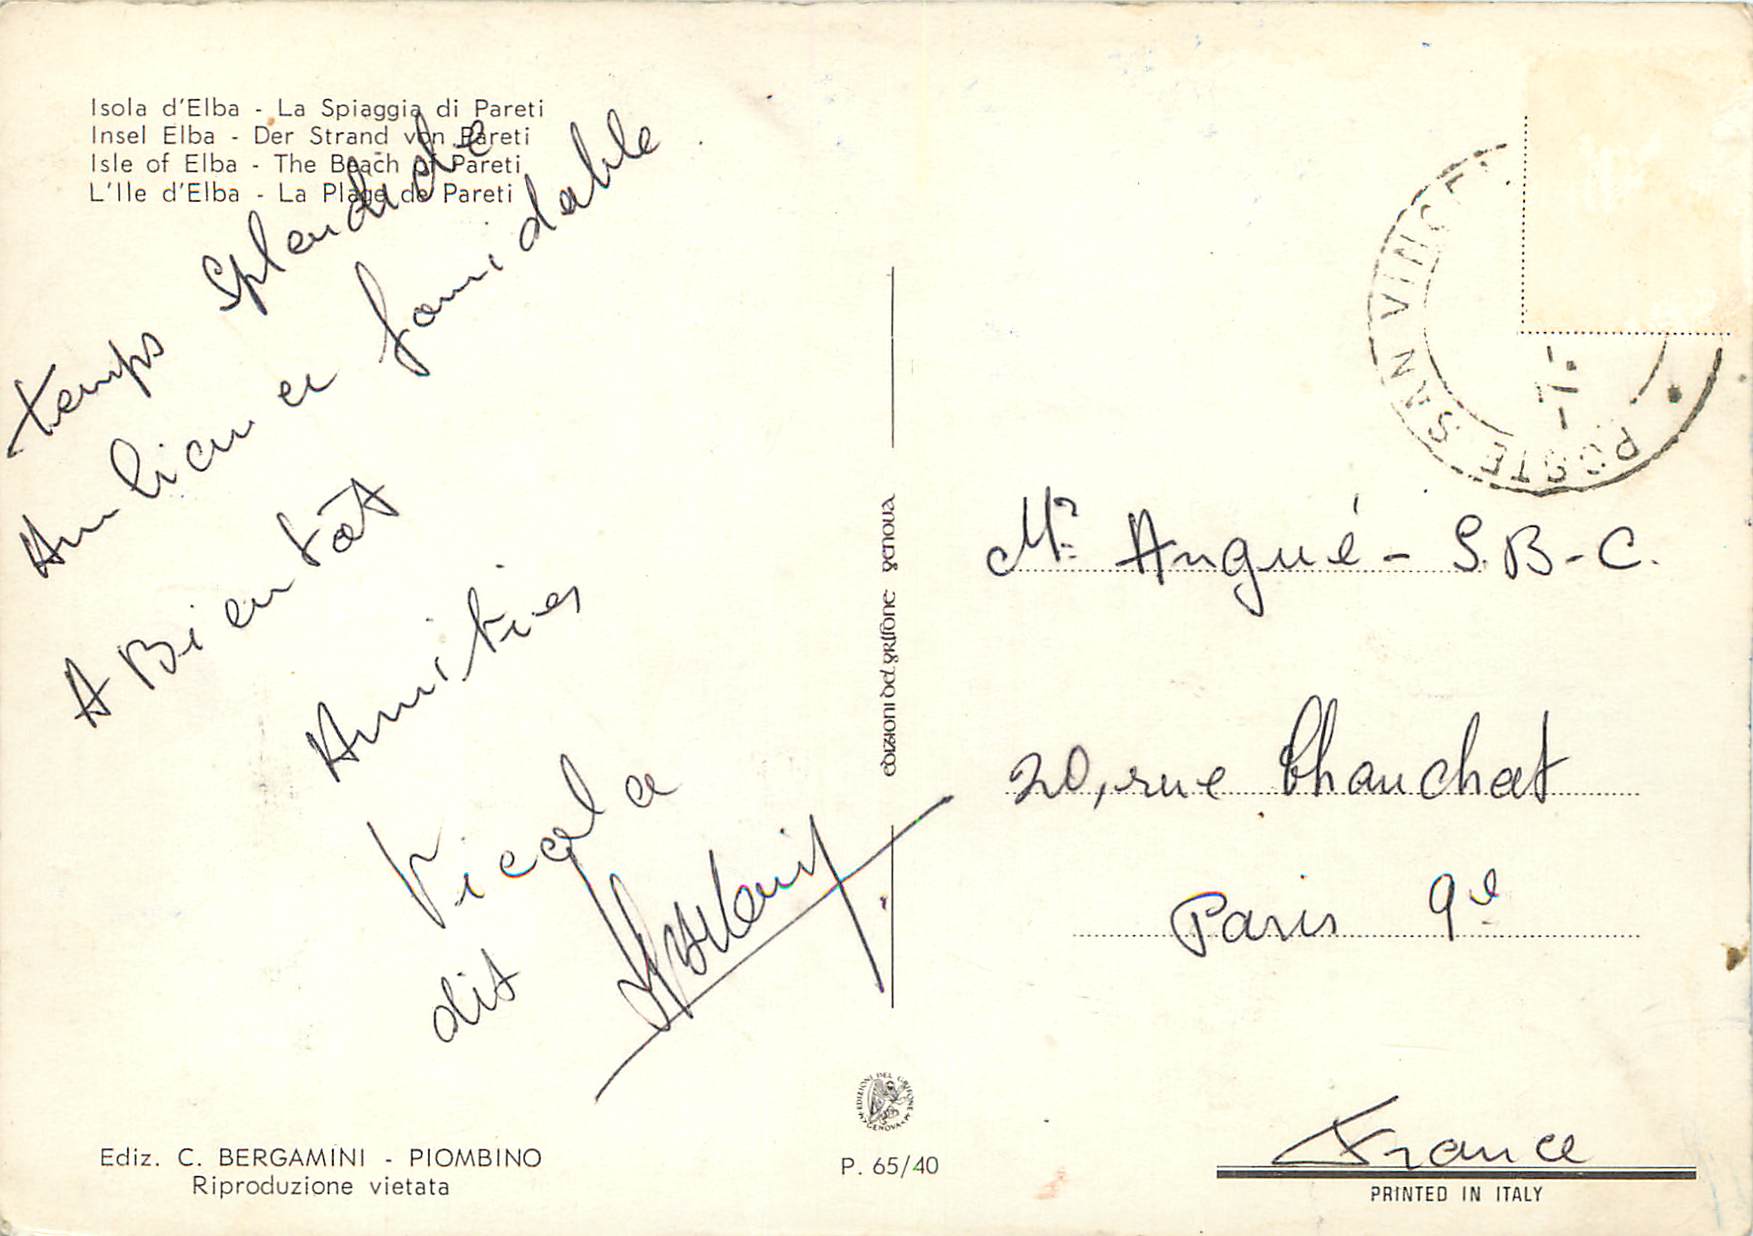 Isola d'Elba - La Spiaggia di Pareti
Insel Elba - Der Strand von Pareti
Isle of Elba - The Beach of Pareti
L'Ile d'Elba - La Plage de Pareti
temps splendide
Ambiance formidable
A Bientôt
Amitiés
dit
EDIZIONI DEL GRIFONE GENOVA
POSTE SAN VINCE
Mr Angué - S.B-C.
20, rue Chauchat
Paris 9e
France
PRINTED IN ITALY
EDIZIONI DEL GRIFONE
GENOVA
P. 65/40
Ediz. C. BERGAMINI - PIOMBINO
Riproduzione vietata